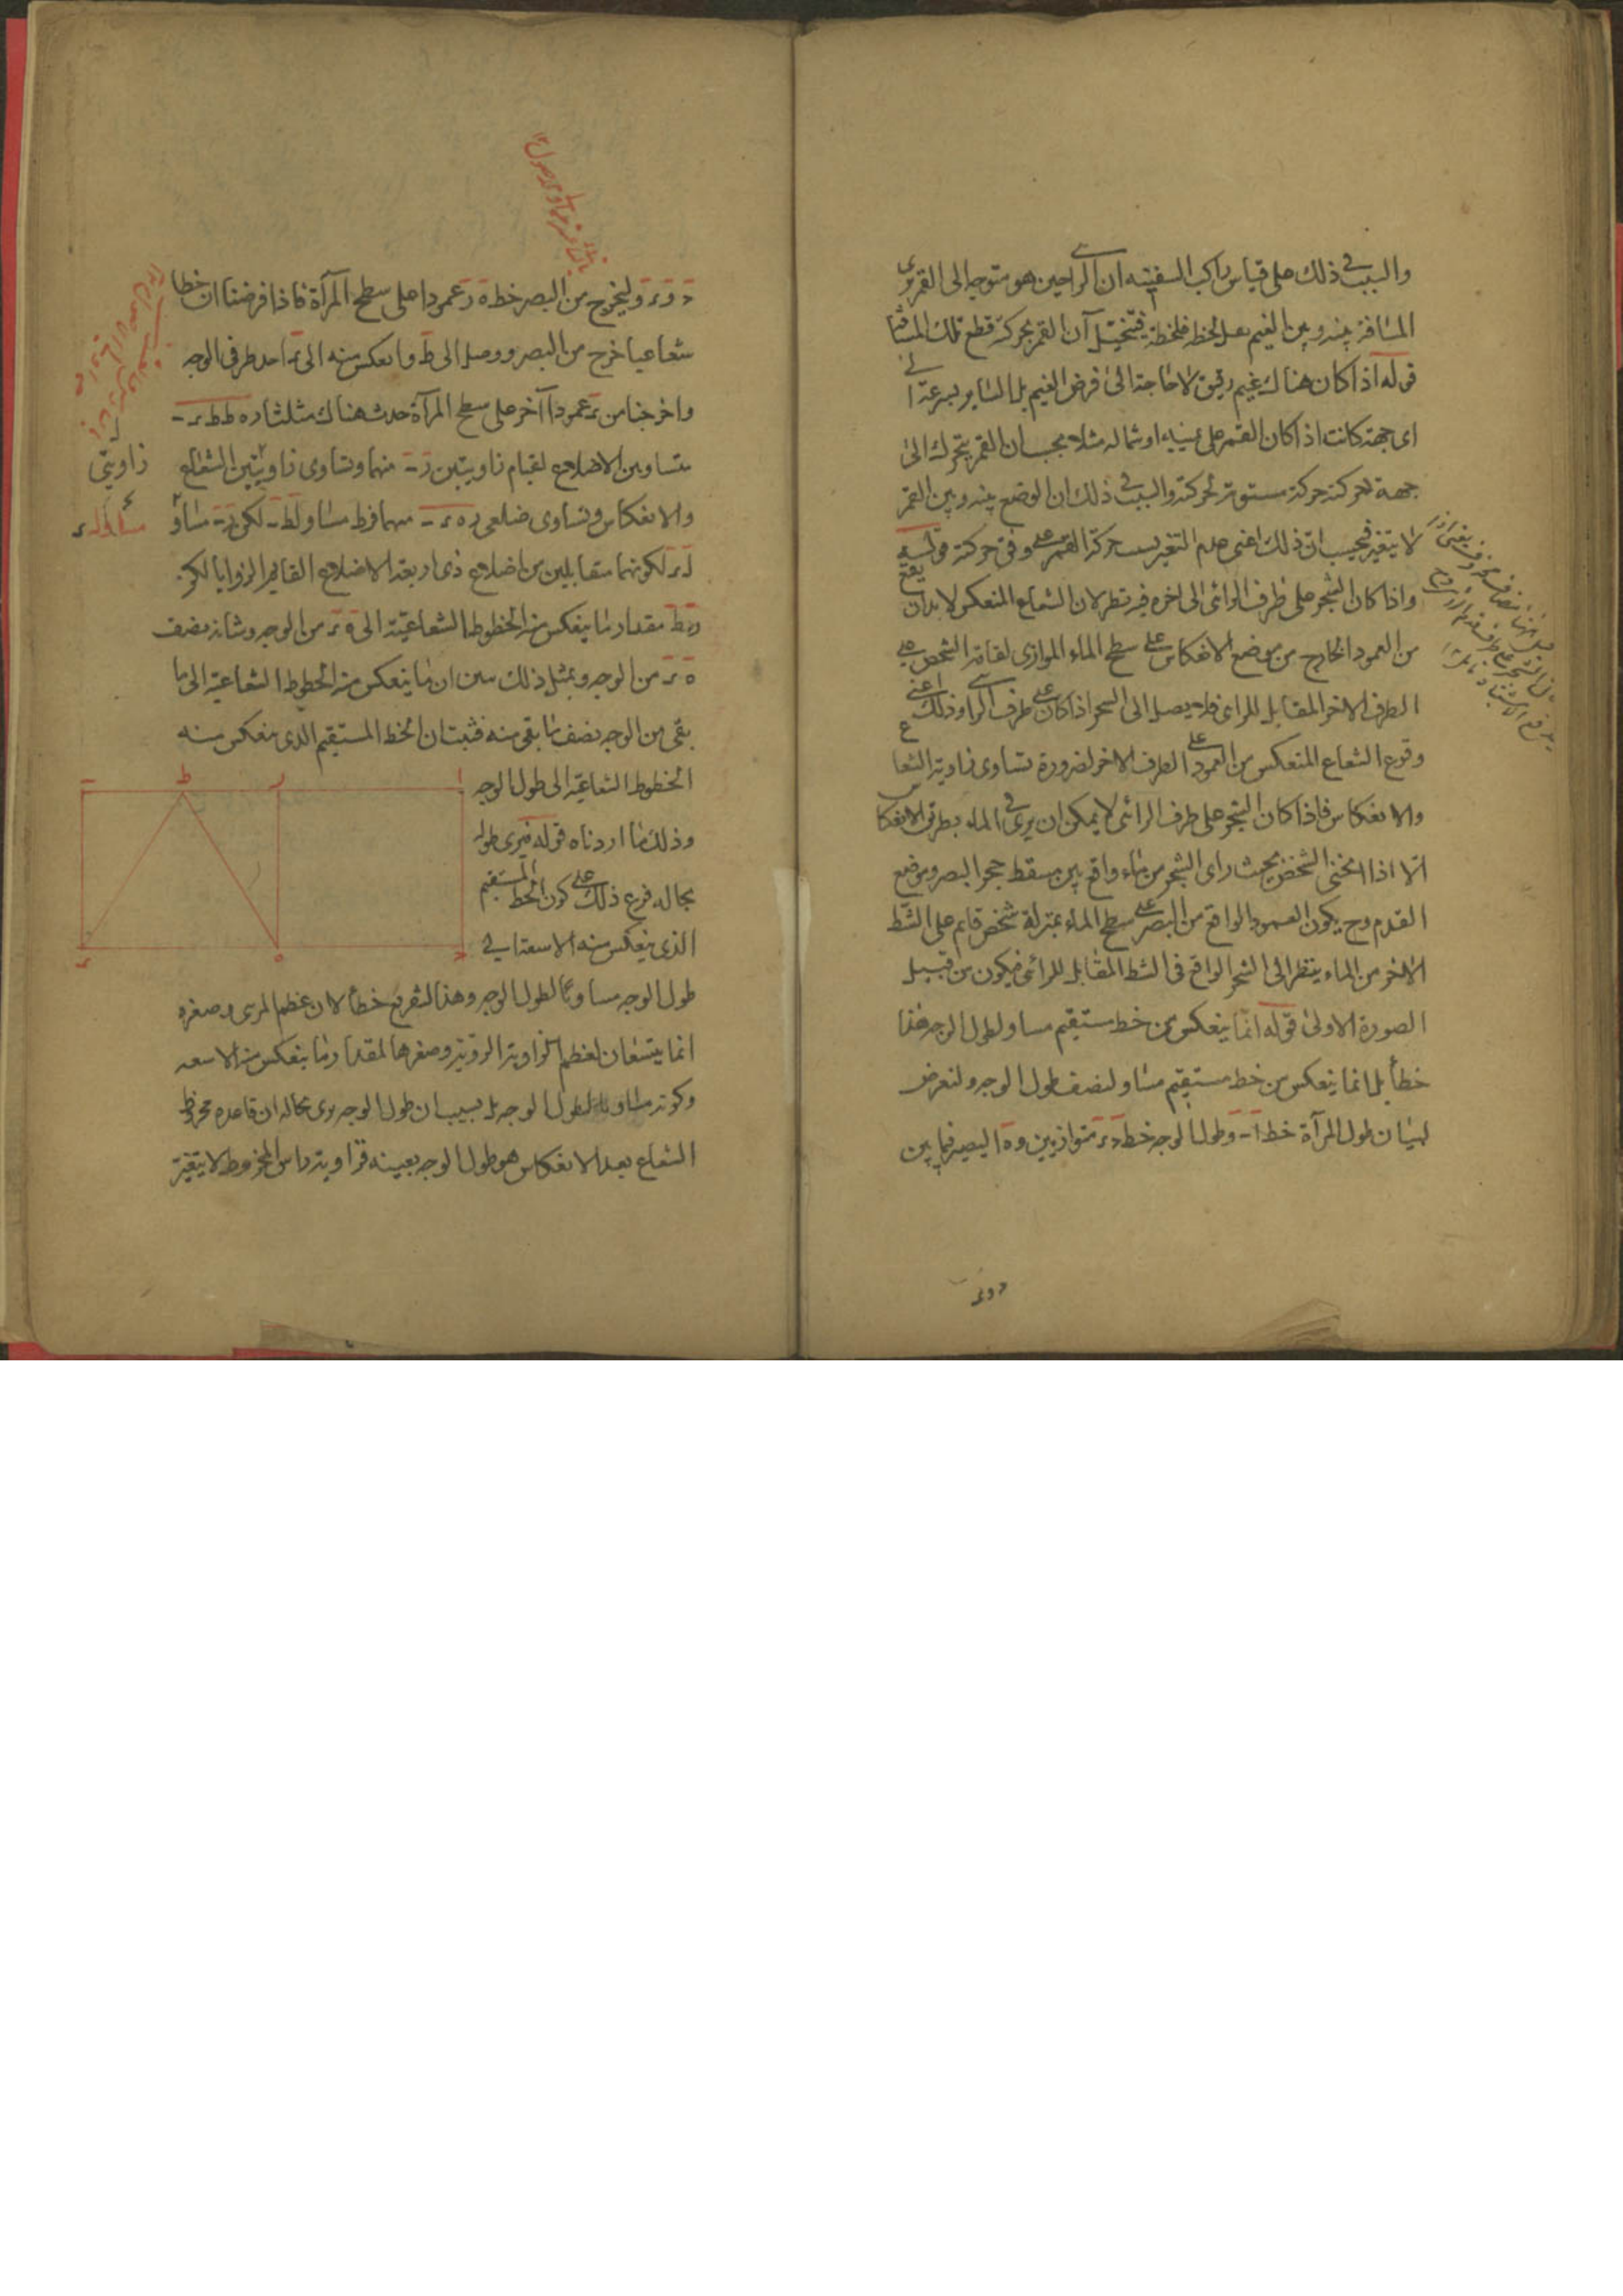 والسبب في ذلك على قياس راكب السفينة ان الرائي حين هو متوجه الى القمر يرى
المسافة بينه وبين الغيم لحظة فلحظة فيتخيل ان القمر بحركته قطع تلك المسافة
قوله اذا كان هناك غيم رقيق لا حاجة الى فرض الغيم بل السائر بسرعة الى
اى جهة كانت اذا كان القمر على يمينه او شماله مثلا يحسب ان القمر يتحرك الى
جهة حركته حركة مستوية لحركته والسبب في ذلك ان الوضع بينه وبين القمر
لا يتغير فيحسب ان ذلك اعنى عدم التغير بسبب حركة القمر على وفق حركته قوله
واذا كان الشجر على طرف الرائى الى اخره فيه نظر لان الشعاع المنعكس لا بد ان يقع
من العمود الخارج من موضع الانعكاس على سطح الماء الموازى لقامة الشخص على
الطرف الاخر المقابل للرائى فلا يصل الى الشجر اذا كان على طرف الرائى وذلك اعنى
وقوع الشعاع المنعكس من العمود على الطرف الاخر لضرورة تساوى زاوية الشعاع
والانعكاس فاذا كان الشجر على طرف الرائى لا يمكن ان يرى في الماء بطريق الانعكاس
الا اذا انحنى الشخص بحيث راى الشجر من ماء واقع بين مسقط حجر البصر وموضع
القدم وح يكون العمود الواقع من البصر على سطح الماء بمنزلة شخص قايم على الشط
الاخر من الماء ينظر الى الشجر الواقع في الشط المقابل للرائى فيكون من قبيل
الصورة الاولى قوله انما ينعكس من خط مستقيم مساو لطول الوجه هذا
خطأ بل انما ينعكس من خط مستقيم مساو لنصف طول الوجه ولنفرض
لبيان طول المرآة خط ا ب وطول الوجه خط د ر متوازيين و ه البصر فيما بين
د و ر
د و ر وليخرج من البصر خط ه ز عمودا على سطح المرآة فاذا فرضنا ان خطا
شعاعيا خرج من البصر ووصل الى ط وانعكس منه الى ر احد طرفى الوجه
واخرجنا من ر عمودا آخر على سطح المرآة حدث هناك مثلثا ز ه ط ط ر ب
متساويين الاضلاع لقيام زاويتين ز ب منهما وتساوى زاويتين الشعاع
والانعكاس وتساوى ضلعى ز ه ر ب منهما فزط مساو لط ب لكن ز ب مساو
ل ه ر لكونهما متقابلين من اضلاع ذى اربعة الاضلاع القايم الزوايا لكن
ز ط مقدار ما ينعكس منه الخطوط الشعاعية الى ه ر من الوجه وشانه نصف
ه ر من الوجه وبمثل ذلك نبين ان ما ينعكس منه الخطوط الشعاعية الى ما
بقى من الوجه نصف ما بقى منه فثبت ان الخط المستقيم الذى ينعكس منه
الخطوط الشعاعية الى طول الوجه
وذلك ما اردناه قوله فيرى طوله
بحاله فرع ذلك على كون الخط المستقيم
الذى ينعكس منه الاشعة الى
طول الوجه مساويا لطول الوجه وهذا التفريع خطأ لان عظم المرئى وصغره
انما يتبعان لعظم الزاوية الرؤية وصغرها لمقدار ما ينعكس منه الاشعة
وكونه مساويا لطول الوجه بل بسبب ان طول الوجه يرى بحاله ان قاعدة مخروط
الشعاع بعد الانعكاس هو طول الوجه بعينه فزاوية راس المخروط لا يتغير